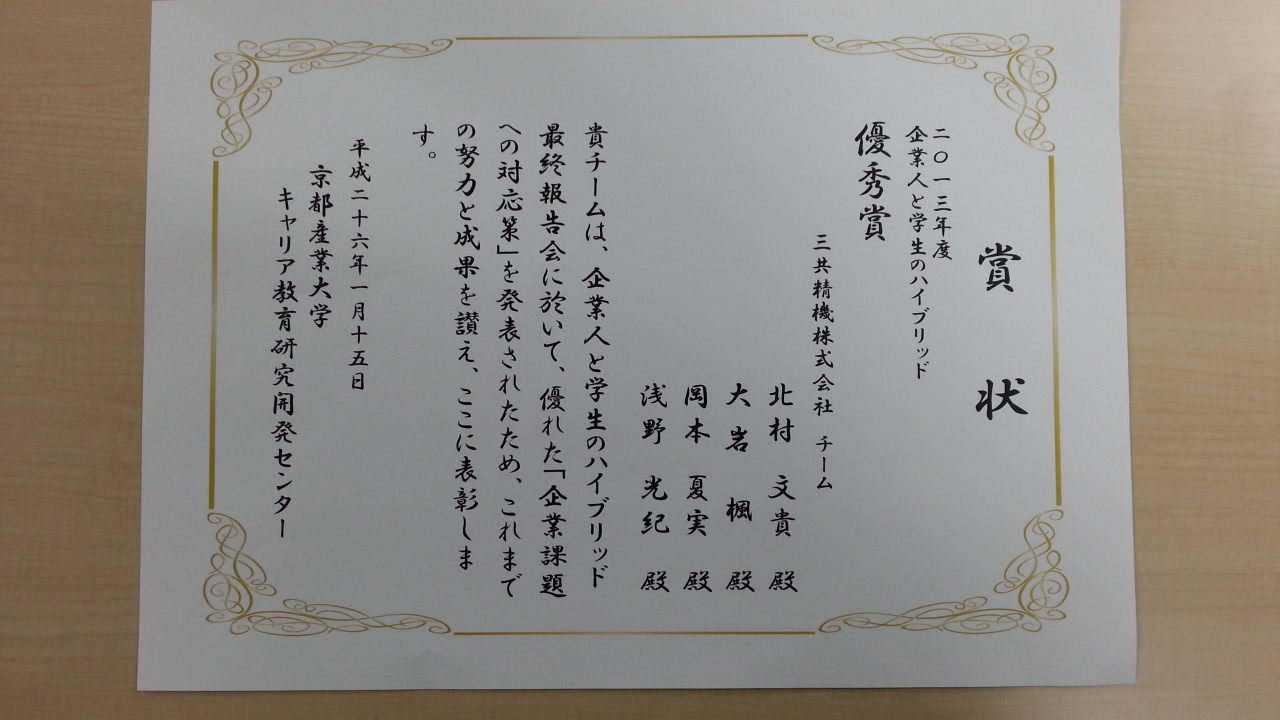 賞状
二〇一三年度
企業人と学生のハイブリッド
優秀賞
三共精機株式会社 チーム
北村 文貴 殿
大岩 楓 殿
岡本 夏実 殿
浅野 光紀 殿
貴チームは、企業人と学生のハイブリッド
最終報告会に於いて、優れた「企業課題
への対応策」を発表されたため、これまで
の努力と成果を讃え、ここに表彰しま
す。
平成二十六年一月十五日
京都産業大学
キャリア教育研究開発センター